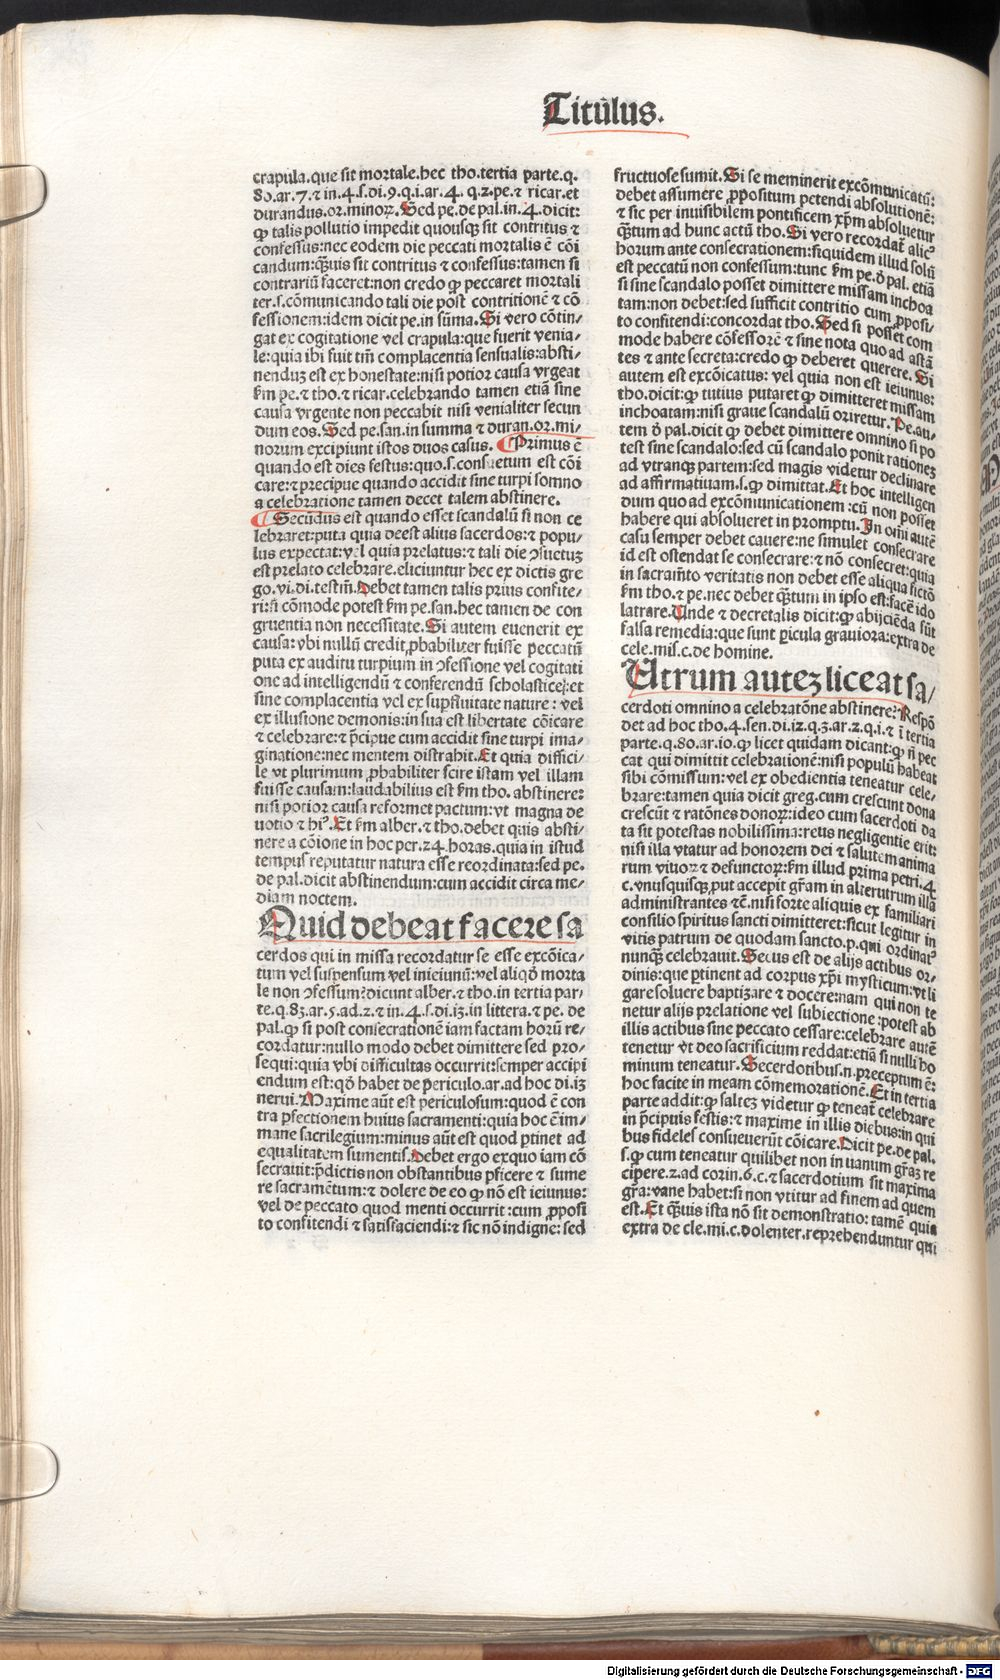 Titūlus.
crapula.que sit mortale.hec tho.tertia parte.q.
80.ar.7.⁊ in.4.s.di.9.q.i.ar.4. q.2.pe.⁊ ricar.et
durandus.or.minoꝝ. Sed pe.de pal.in.4.dicit:
ꝙ talis pollutio impedit quousqꝫ sit contritus ⁊
confessus:nec eodem die peccati mortalis ē cōi
candum:q̄uis sit contritus ⁊ confessus:tamen si
contrariū faceret:non credo ꝙ peccaret mortali
ter.s.cōmunicando tali die post contritionē ⁊ cō
fessionem:idem dicit pe.in sūma. Si vero cōtin/
gat ex cogitatione vel crapula:que fuerit venia/
le:quia ibi fuit tm̄ complacentia sensualis:absti/
nenduꝫ est ex honestate:nisi potior causa vrgeat
ẜm pe.⁊ tho.⁊ ricar.celebrando tamen etiā sine
causa vrgente non peccabit nisi venialiter secun
dum eos. Sed pe.san.in summa ⁊ duran.or.mi/
norum excipiunt istos duos casus. ¶Primus ē
quando est dies festus:quo.s.consuetum est cōi
care:⁊ precipue quando accidit sine turpi somno
a celebratione tamen decet talem abstinere.
¶Secūdus est quando esset scandalū si non ce
lebraret:puta quia deest alius sacerdos:⁊ popu/
lus expectat:vel quia prelatus:⁊ tali die ꝯsuetuꝫ
est prelato celebrare.eliciuntur hec ex dictis gre
go.vi.di.testm̄. Debet tamen talis prius confite/
ri:si cōmode potest ẜm pe.san.hec tamen de con
gruentia non necessitate. Si autem euenerit ex
causa:vbi nullū credit ꝓbabiliter fuisse peccatū
puta ex auditu turpium in ꝯfessione vel cogitati
one ad intelligendū ⁊ conferendū scholastice:et
sine complacentia vel ex supfluitate nature: vel
ex illusione demonis:in sua est libertate cōicare
⁊ celebrare:⁊ p̄cipue cum accidit sine turpi ima/
ginatione:nec mentem distrahit. Et quia diffici/
le vt plurimum ꝓbabiliter scire istam vel illam
fuisse causam:laudabilius est ẜm tho. abstinere:
nisi potior causa reformet pactum:vt magna de
uotio ⁊ hiꝰ. Et ẜm alber.⁊ tho.debet quis absti/
nere a cōione in hoc per.24.horas.quia in istud
tempus reputatur natura esse reordinata:sed pe.
de pal.dicit abstinendum:cum accidit circa me/
diam noctem.
Quid debeat facere sa
cerdos qui in missa recordatur se esse excōica/
tum vel suspensum vel ieiunū:vel aliqō morta
le non ꝯfessum?dicunt alber.⁊ tho.in tertia par/
te.q.83.ar.5.ad.2.⁊ in.4.s.di.13.in littera.⁊ pe. de
pal.ꝙ si post consecrationē iam factam horū re/
cordatur:nullo modo debet dimittere sed pro/
sequi:quia vbi difficultas occurrit:semper accipi
endum est:qō habet de periculo.ar.ad hoc di.13
nerui. Maxime aūt est periculosum:quod ē con
tra pfectionem huius sacramenti:quia hoc ē im/
mane sacrilegium:minus aūt est quod ptinet ad
equalitatem sumentis. Debet ergo exquo iam cō
secrauit:p̄dictis non obstantibus pficere ⁊ sume
re sacramētum:⁊ dolere de eo ꝙ nō est ieiunus:
vel de peccato quod menti occurrit:cum ꝓposi
to confitendi ⁊ satisfaciendi:⁊ sic nō indigne:sed
fructuose sumit. Si se meminerit excōmunicatū:
debet assumere ꝓpositum petendi absolutionē:
⁊ sic per inuisibilem pontificem xp̄m absoluetur
q̄tum ad hunc actū tho. Si vero recordat̄ alicꝰ
horum ante consecrationem:siquidem illud solū
est peccatū non confessum:tunc ẜm pe.ō pal. etiā
si sine scandalo posset dimittere missam inchoa
tam:non debet:sed sufficit contritio cum ꝓposi/
to confitendi:concordat tho. Sed si posset com
mode habere cōfessorē ⁊ sine nota quo ad astā
tes ⁊ ante secreta:credo ꝙ deberet querere. Si
autem est excōicatus: vel quia non est ieiunus:
tho.dicit:ꝙ tutius putaret ꝙ dimitteret missam
inchoatam:nisi graue scandalū oriretur. Pe.au/
tem ō pal.dicit ꝙ debet dimittere omnino si po
test sine scandalo:sed cū scandalo ponit rationeꝫ
ad vtranqꝫ partem:sed magis videtur declinare
ad affirmatiuam.s.ꝙ dimittat. Et hoc intelligen
dum quo ad excōmunicationem:cū non posset
habere qui absolueret in promptu. In om̄i autē
casu semper debet cauere:ne simulet consecrare
id est ostendat se consecrare:⁊ nō consecret:quia
in sacram̄to veritatis non debet esse aliqua fictō
ẜm tho.⁊ pe.nec debet q̄tum in ipso est:facē ido
latrare. Unde ⁊ decretalis dicit:ꝙ abijciēda sūt
falsa remedia:que sunt ꝑicula grauiora:extra de
cele.mis.c.de homine.
Utrum auteꝫ liceat sa/
cerdoti omnino a celebratōne abstinere? Respō
det ad hoc tho.4.sen.di.12.q.3.ar.2.q.i.⁊ ī tertia
parte.q.80.ar.10.ꝙ licet quidam dicant:ꝙ n̄ pec
cat qui dimittit celebrationē:nisi populū habeat
sibi cōmissum:vel ex obedientia teneatur cele/
brare:tamen quia dicit greg.cum crescunt dona
crescūt ⁊ ratōnes donoꝝ:ideo cum sacerdoti da
ta sit potestas nobilissima:reus negligentie erit:
nisi illa vtatur ad honorem dei ⁊ salutem anima
rum viuoꝝ ⁊ defunctoꝝ:ẜm illud prima petri.4.
c.vnusquisqꝫ put accepit gr̄am in alterutrum illā
administrantes ⁊c̄.nisi forte aliquis ex familiari
consilio spiritus sancti dimitteret:sicut legitur in
vitis patrum de quodam sancto.p.qui ordinatꝰ
nunqꝫ celebrauit. Secus est de alijs actibus or/
dinis:que ptinent ad corpus xp̄i mysticum:vt li
gare soluere baptizare ⁊ docere:nam qui non te
netur alijs prelatione vel subiectione:potest ab
illis actibus sine peccato cessare:celebrare autē
tenetur vt deo sacrificium reddat:etiā si nulli ho
minum teneatur. Sacerdotibus.n.preceptum ē:
hoc facite in meam cōmemorationē. Et in tertia
parte addit:ꝙ salteꝫ videtur ꝙ teneat̄ celebrare
in p̄cipuis festis:⁊ maxime in illis diebus:in qui
bus fideles consueuerūt cōicare. Dicit pe.de pal.
s.ꝙ cum teneatur quilibet non in uanum gr̄aꝫ re
cipere.2.ad corin.6.c.⁊ sacerdotium sit maxima
gr̄a:vane habet:si non vtitur ad finem ad quem
est. Et q̄uis ista nō sit demonstratio: tamē quia
extra de cle.mi.c.dolenter.reprehenduntur qui
Digitalisierung gefördert durch die Deutsche Forschungsgemeinschaft - DFG